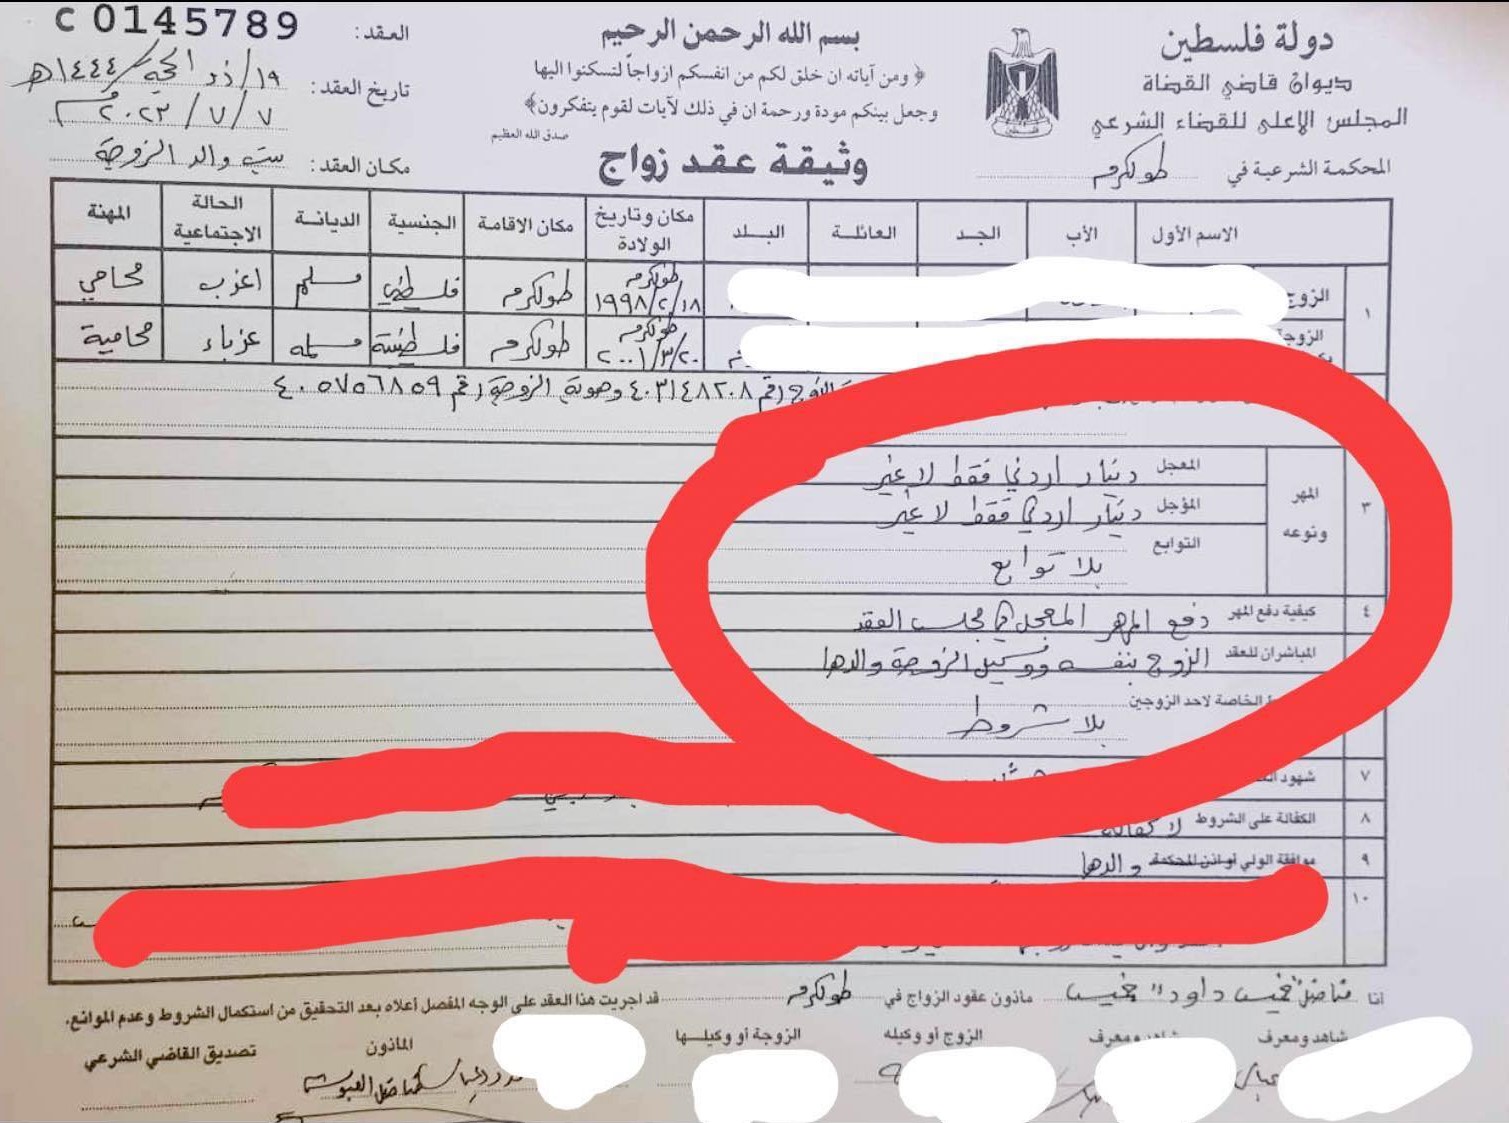 دولة فلسطين
ديوان قاضي القضاة
المجلس الاعلى للقضاء الشرعي
المحكمة الشرعية في طولكرم
فلسطين
بسم الله الرحمن الرحيم
﴿ ومن آياته ان خلق لكم من انفسكم ازواجاً لتسكنوا اليها
وجعل بينكم مودة ورحمة ان في ذلك لآيات لقوم يتفكرون﴾
صدق الله العظيم
وثيقة عقد زواج
العقد: C 0145789
تاريخ العقد: ١٩/ذو الحجة/١٤٤٤هـ
٧/٧/٢٠٢٣م
مكان العقد: بيت والد الزوجة
الاسم الأول الأب الجد العائلة البلد مكان وتاريخ الولادة مكان الاقامة الجنسية الديانة الحالة الاجتماعية المهنة
١ الزوج طولكرم ١٩٩٨/٢/١٨ طولكرم فلسطيني مسلم اعزب محامي
الزوجة طولكرم ٢٠٠١/٣/٢٠ طولكرم فلسطينية مسلمة عزباء محامية
الزوج رقم ٤٠٣١٤٨٢٠٨ وهوية الزوجة رقم ٤٠٥٧٥٦٨٥٩
٣ المهر ونوعه
المعجل دينار اردني فقط لا غير
المؤجل دينار اردني فقط لا غير
التوابع بلا توابع
٤ كيفية دفع المهر دفع المهر المعجل في مجلس العقد
المباشران للعقد الزوج بنفسه ووكيل الزوجة والدها
الخاصة لاحد الزوجين بلا شروط
٧ شهود
٨ الكفالة على الشروط لا كفالة
٩ موافقة الولي او اذن المحكمة والدها
١٠
انا مأذون عقود الزواج في طولكرم قد اجريت هذا العقد على الوجه المفصل أعلاه بعد التحقيق من استكمال الشروط وعدم الموانع.
شاهد ومعرف شاهد ومعرف الزوج أو وكيله الزوجة أو وكيلها المأذون تصديق القاضي الشرعي